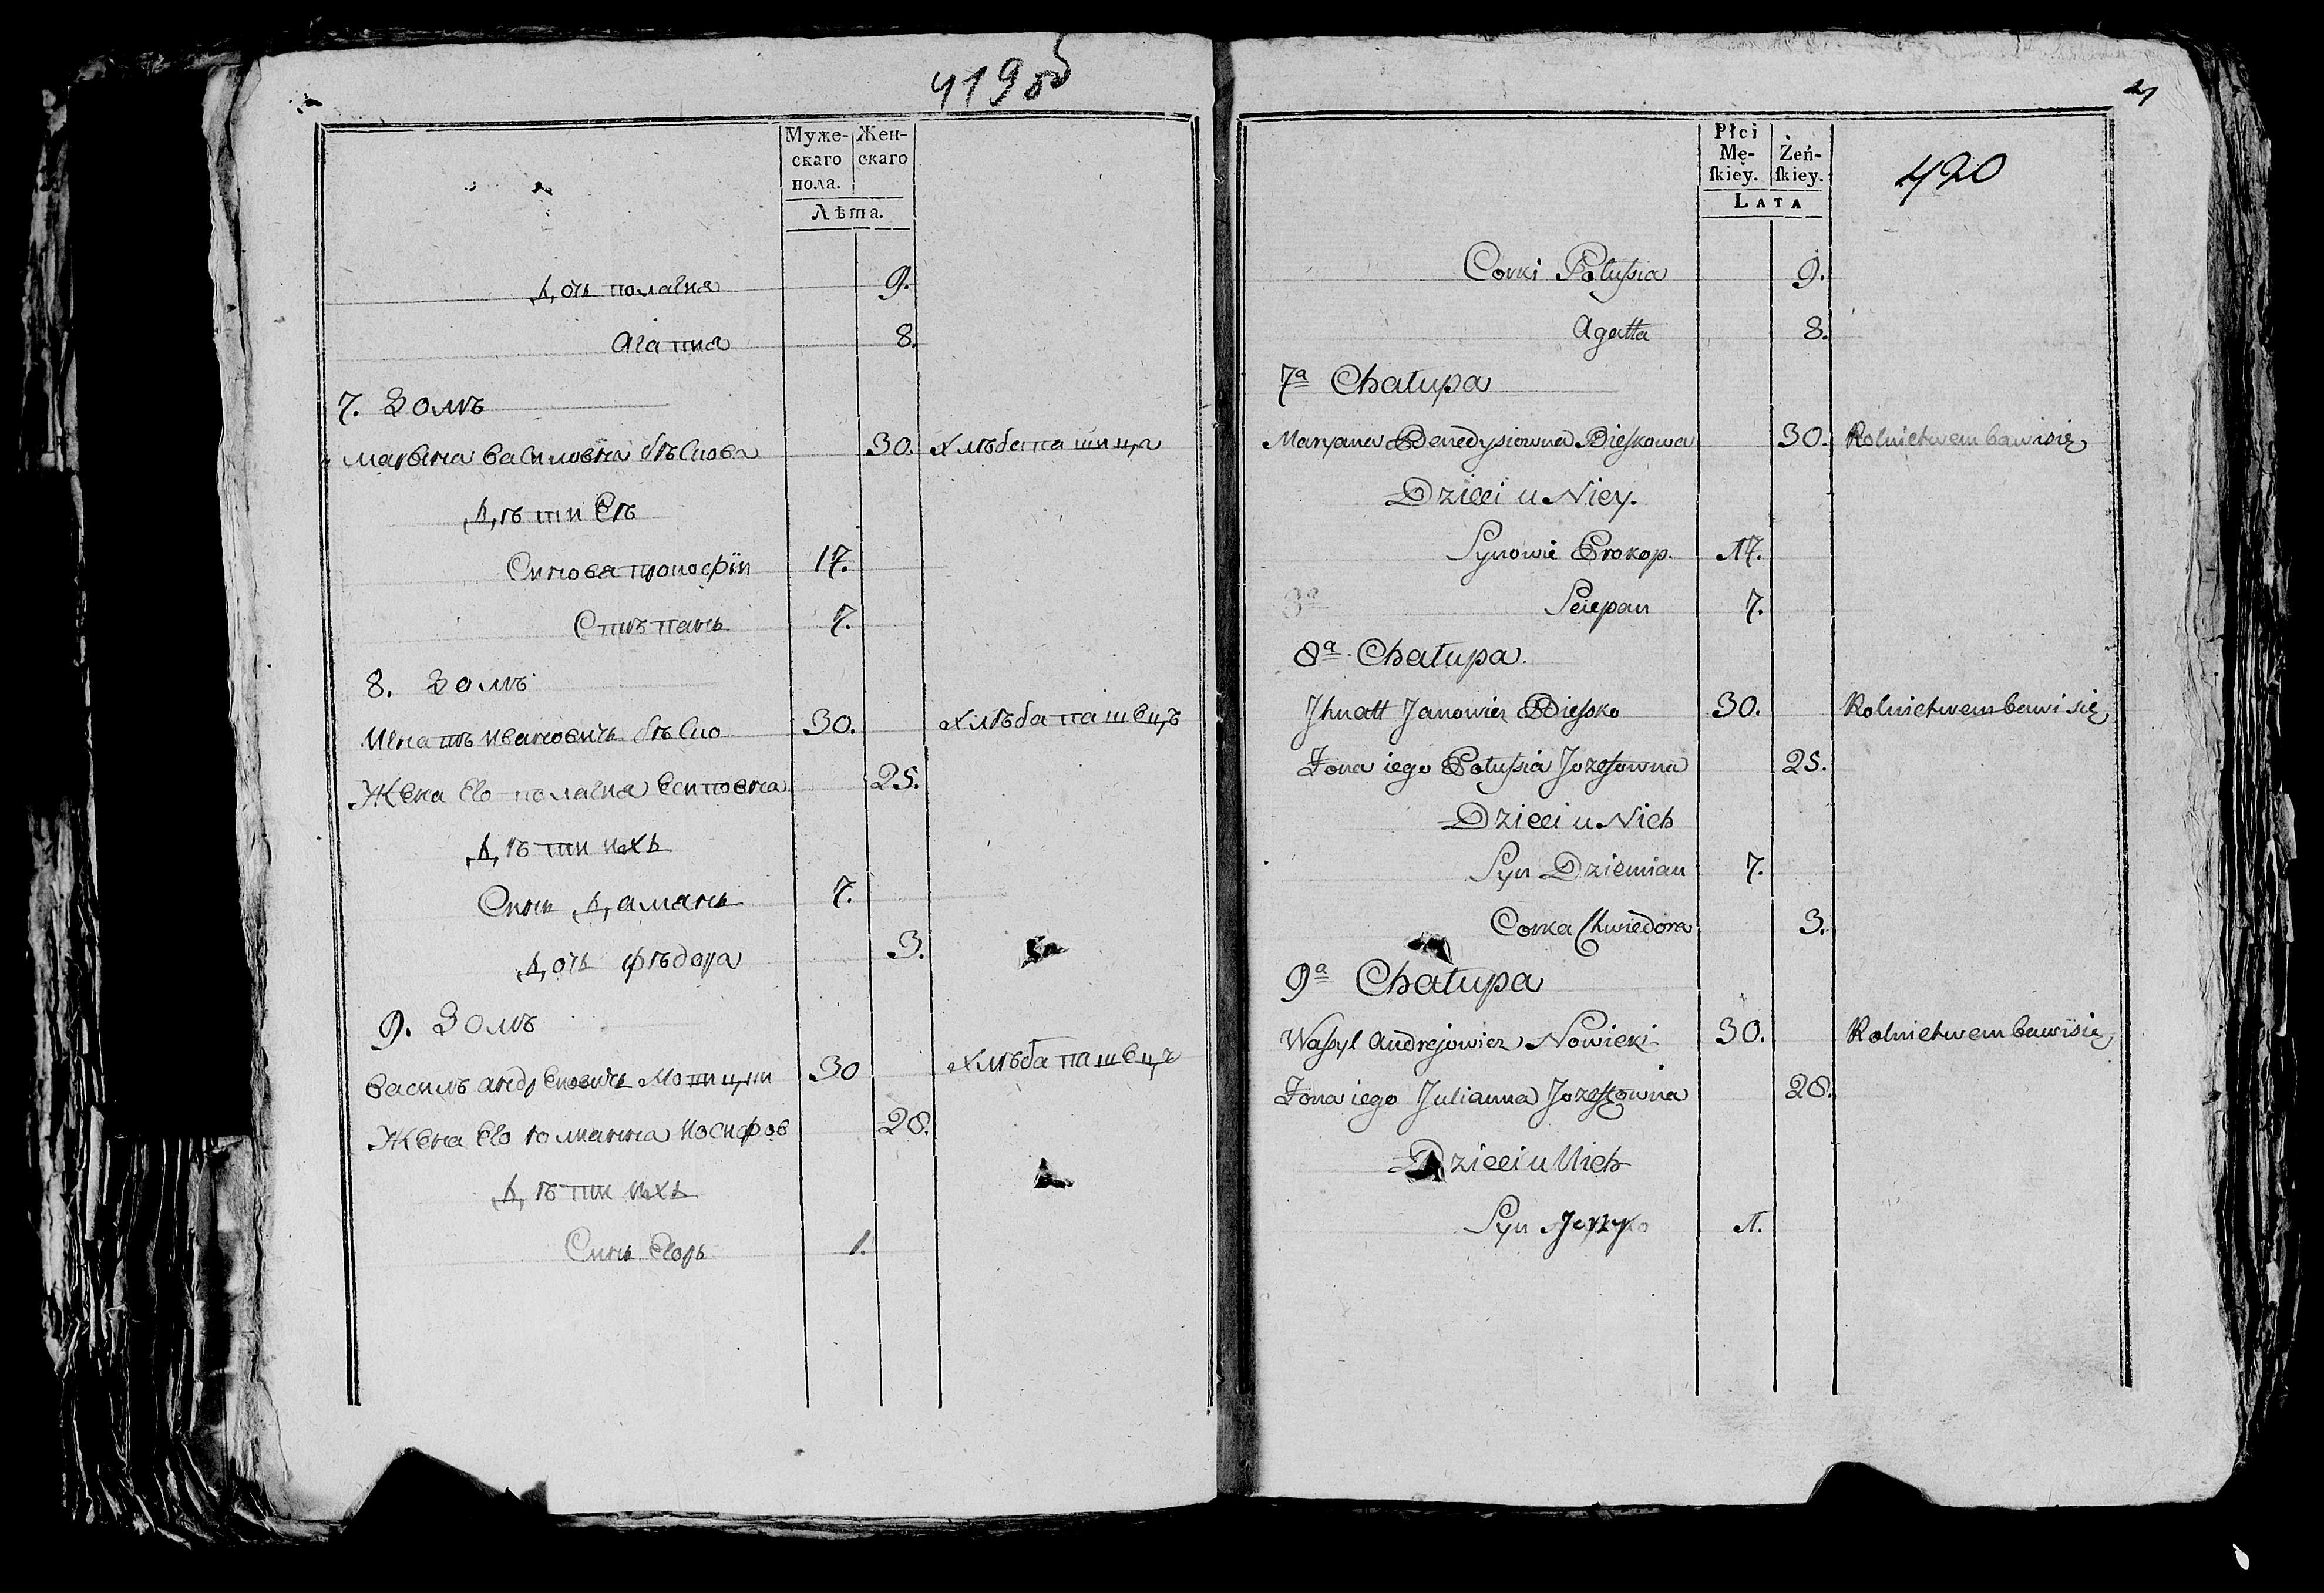 419 об
Муже-
скаго
пола.
Жен-
скаго
Лѣта.
дочь полагия 9.
агатпия 8.
7. Домъ
марьяна василовна бѣскова 30. хлѣбапашица
дѣти Еѣ
Синовя прокофій 17.
Стѣпанъ 7.
8. Домъ
Игнатъ ивановичь бѣско 30. хлѣбапашецъ
Жена его полагия есиповна 25.
дѣти ихъ
Синъ дамянъ 7.
дочь фѣдора 3.
9. Домъ
василъ андреювичь 30 хлѣбапашецъ
Жена его юлианна иосифов 28.
дѣти ихъ
Синъ Егоръ 1.
420
Płci
Mę-
ſkiey.
Żeń-
ſkiey.
LATA
Corki Polussia 9.
Agatta 8.
7ª Chałupa
Maryana Bieskowa 30. Rolnictwem bawi się
Dzieci u Niey.
Synowie Prokop. 17.
Sciepan 7.
8ª Chałupa.
Jhnatt Janowicz Biessko 30. Rolnictwem bawi się
Żona iego Polussia Jozefowna 25.
Dzieci u Nich
Syn Dziemian 7.
Corka Chwiedora 3.
9ª Chałupa
Wassyl Andrejowicz Nowicki 30. Rolnictwem bawi się
Żona iego Julianna Jozefowna 28.
Dzieci u Nich
Syn Jerzy 1.